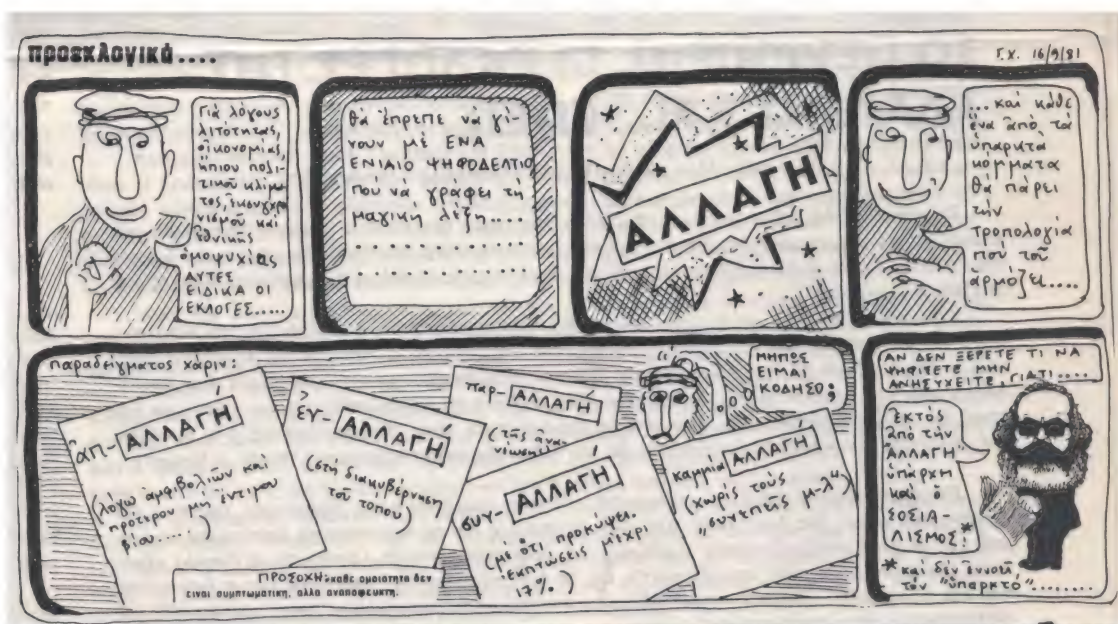 προεκλογικά....
Γ.Χ. 16/9/81
Γιά λόγους
λιτότητας,
οἰκονομίας,
ἤπιου πολι-
τικοῦ κλίμα-
τος, ἐκσυγχρο-
νισμοῦ καί
ἐθνικῆς
ὁμοψυχίας
ΑΥΤΕΣ
ΕΙΔΙΚΑ ΟΙ
ΕΚΛΟΓΕΣ.....
θά ἔπρεπε νά γί-
νουν μέ ΕΝΑ
ΕΝΙΑΙΟ ΨΗΦΟΔΕΛΤΙΟ
πού νά γράφει τή
μαγική λέξη....
ΑΛΛΑΓΗ
... καί κάθε
ἕνα ἀπό τά
ὑπαρκτά
κόμματα
θά πάρει
τήν
τροπολογία
πού τοῦ
ἁρμόζει....
παραδείγματος χάριν:
ἀπ-ΑΛΛΑΓΗ
(λόγω ἀμφιβολιῶν καί
πρότερου μή ἔντιμου
βίου.....)
ἐν-ΑΛΛΑΓΗ
(στή διακυβέρνηση
τοῦ τόπου)
παρ-ΑΛΛΑΓΗ
(τῆς ἀνα-
νέωσης
συν-ΑΛΛΑΓΗ
(μέ ὅτι προκύψει.
ἐκπτώσεις μέχρι
17%)
καμμία ΑΛΛΑΓΗ
(χωρίς τούς
"συνεπεῖς μ-λ")
ΜΗΠΟΣ
ΕΙΜΑΙ
ΚΟΔΗΣΟ;
ΠΡΟΣΟΧΗ: κάθε ομοιότητα δεν
ειναι συμπτωματικη, αλλα αναποφευκτη.
ΑΝ ΔΕΝ ΞΕΡΕΤΕ ΤΙ ΝΑ
ΨΗΦΙΣΕΤΕ ΜΗΝ
ΑΝΗΣΥΧΕΙΤΕ, ΓΙΑΤΙ....
Ἐκτός
ἀπό τήν
ἈΛΛΑΓΗ
ὑπάρχη
καί ὁ
ΣΟΣΙΑ-
ΛΙΣΜΟΣ!*
* καί δέν ἐννοεῖ
τόν "ὑπαρκτό"........